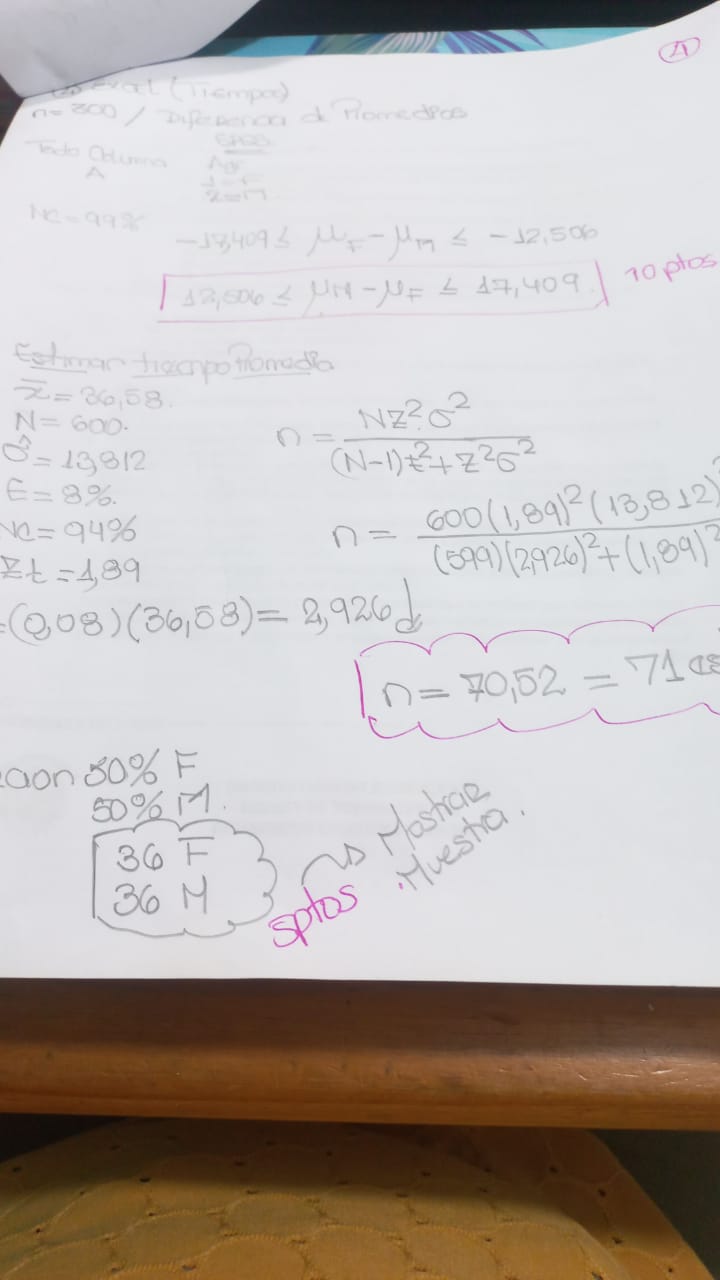 4
Excel (Tiempo)
n= 300 / Diferencia de Promedios
Todo Columna
A
SPSS
1=F
2=M
NC=99%
-17,409 ≤ μF - μM ≤ -12,506
12,506 ≤ μM - μF ≤ 17,409
10 ptos
Estimar tiempo Promedio
x̄ = 36,58.
N = 600.
σ̂ = 13,812
E = 8%.
NC = 94%
Zt = 1,89
=(0,08)(36,58) = 2,926
n = NZ²σ² / (N-1)E² + Z²σ²
n = 600(1,89)²(13,812)² / (599)(2,926)² + (1,89)²
n = 70,52 = 71
50% F
50% M.
36 F
36 M
5ptos
Mostrar
Muestra.